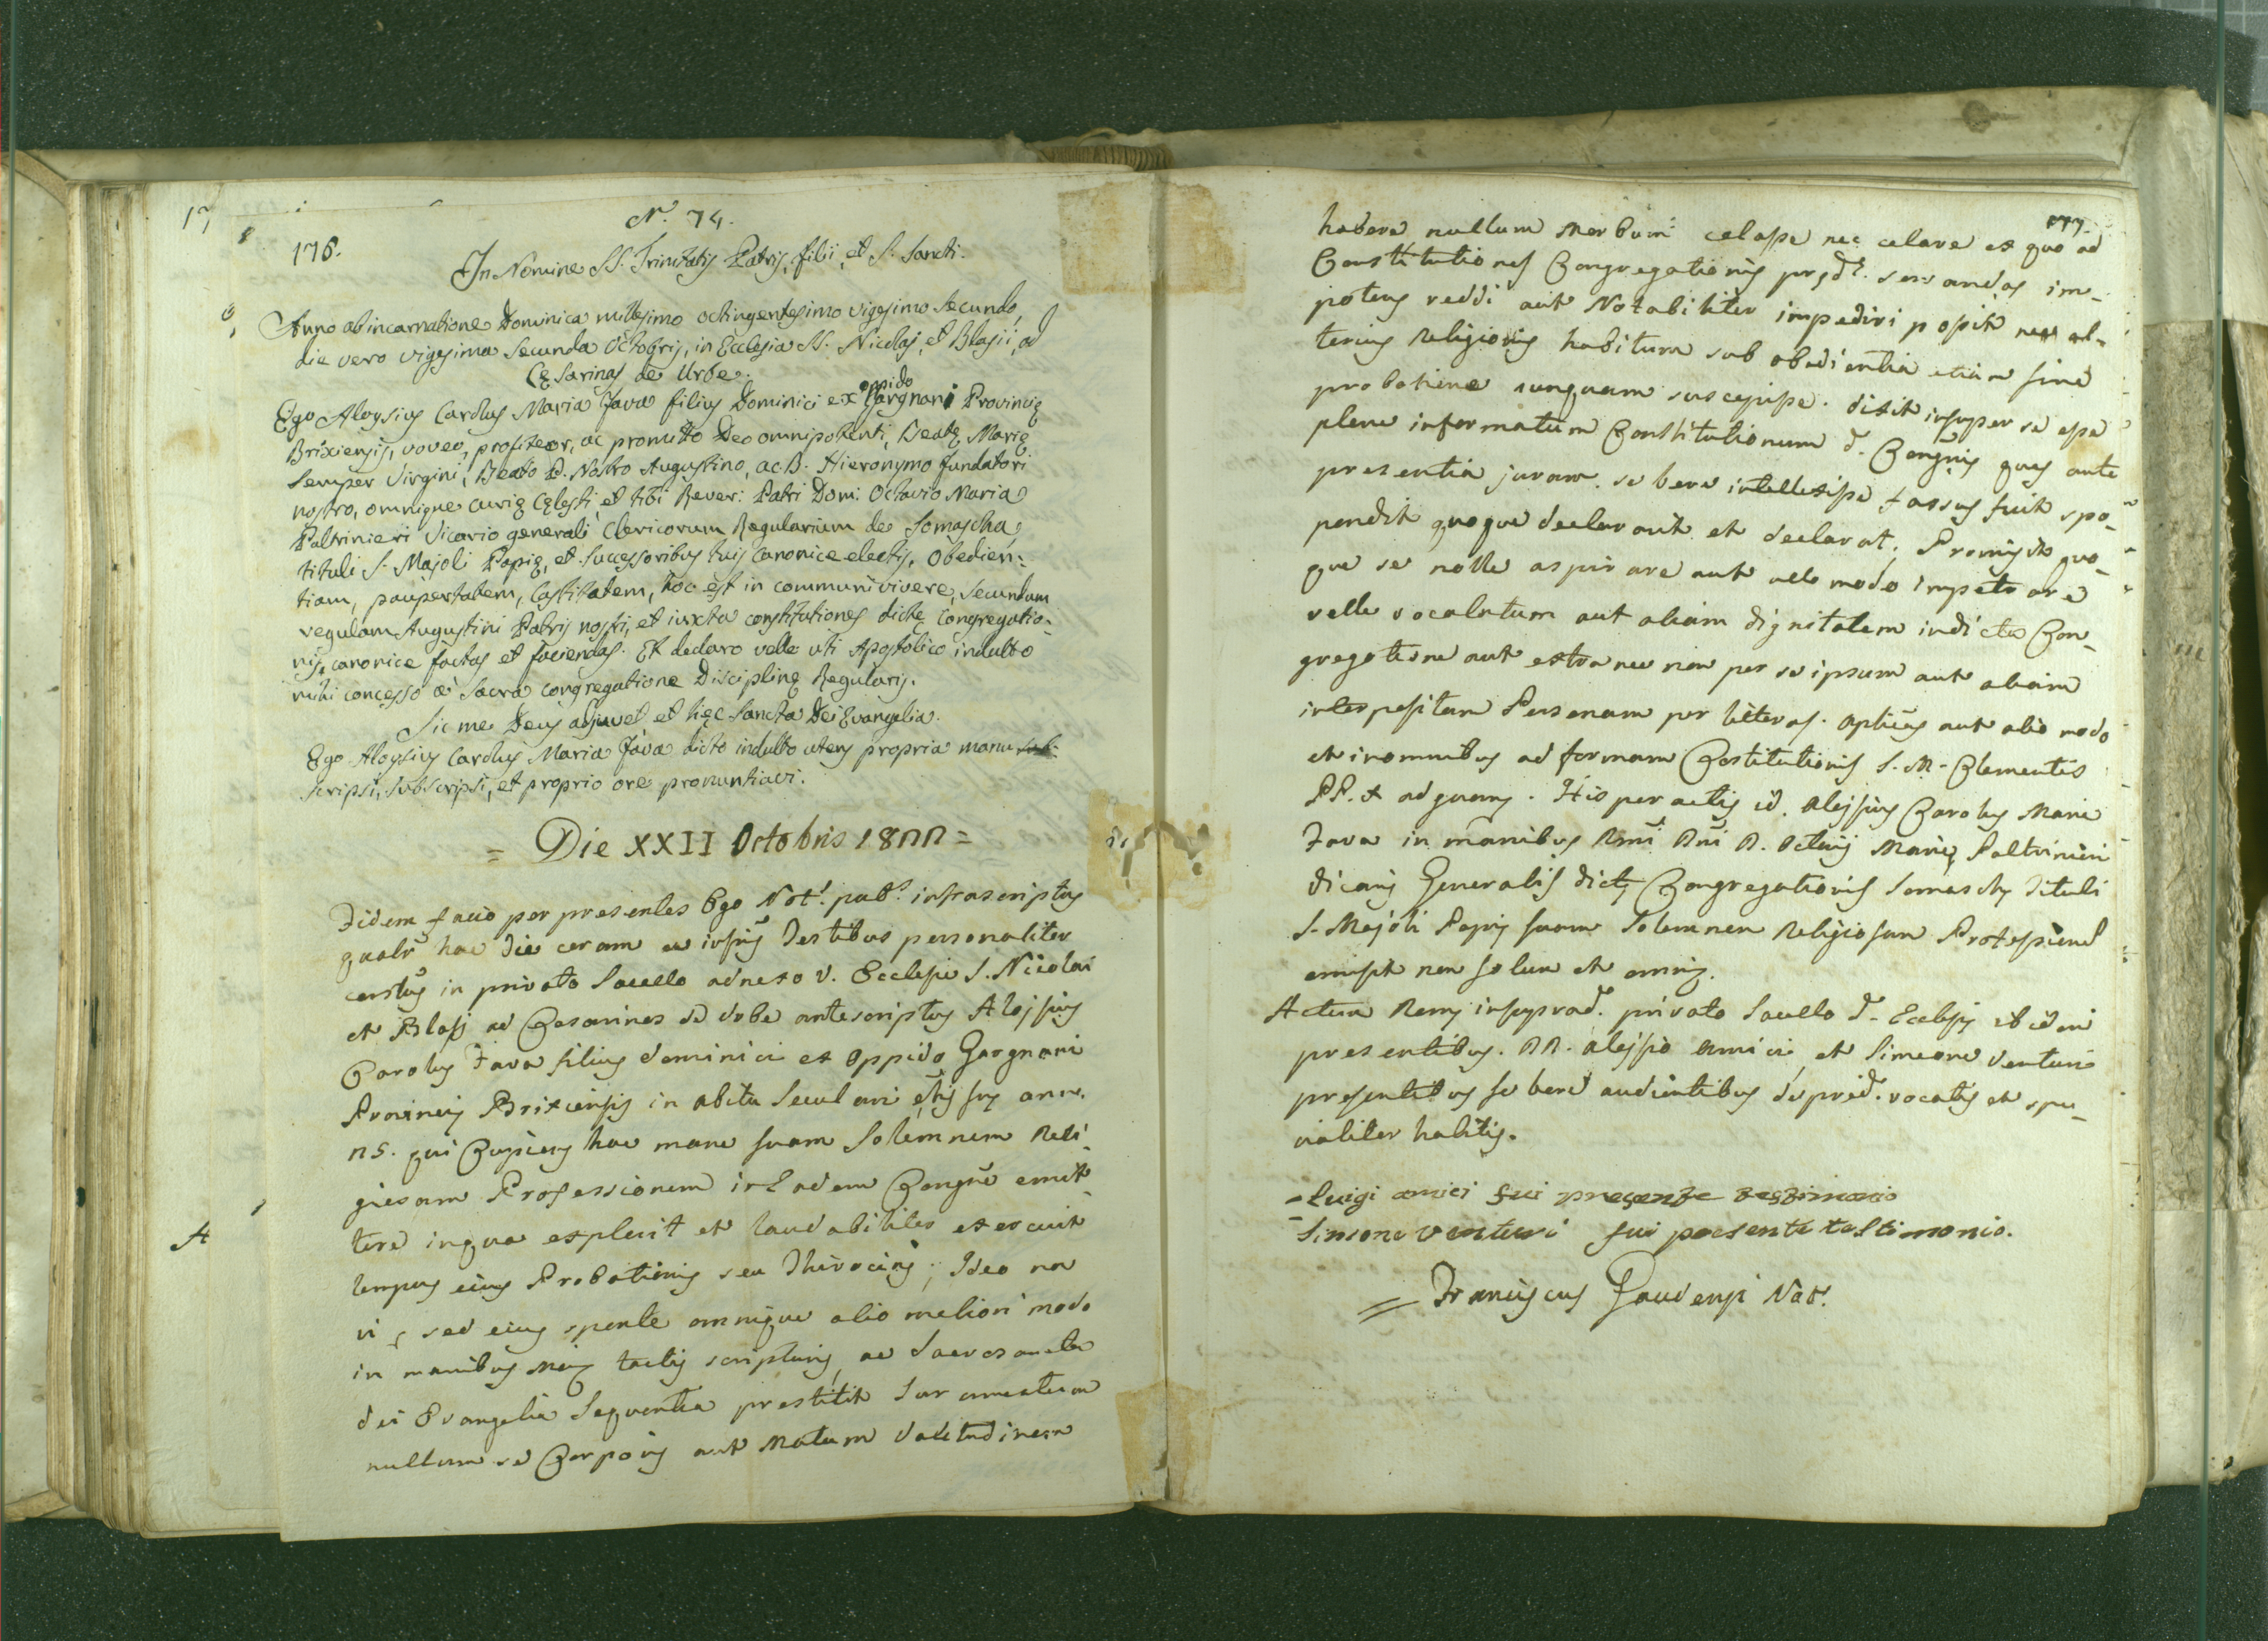 176.
N.° 74.
In Nomine SS. Trinitatis Patris, filii, et S. Sancti.
Anno ab incarnatione Dominica millesimo octingentesimo vigesimo secundo,
die vero vigesima secunda Octobris, in Ecclesia SS. Nicolaj, et Blasii, ad
Cęsarinas de Urbe.
Ego Aloysius Carolus Maria Fava filius Dominici ex oppido Gargnani Provincię
Brixiensis, voveo, profiteor, ac promitto Deo omnipotenti, Beatę Marię
semper Virgini, Beato P. Nostro Augustino, ac B. Hieronymo fundatori
nostro, omnique curię cęlesti, et tibi Rever: Patri Dom: Octavio Maria
Paltrinieri Vicario generali Clericorum Regularium de Somascha,
tituli S. Majoli Papię, et successoribus tuis canonice electis, obedien:
tiam, paupertatem, castitatem, hoc est in communi vivere, secundum
regulam Augustini Patris nostri, et iuxta constitutiones dictę congregatio-
nis, canonice factas et faciendas. Et declaro velle uti Apostolico indulto
mihi concesso a Sacra congregatione Disciplinę Regularis.
Sic me Deus adjuvet et hęc Sancta Dei Evangelia.
Ego Aloysius Carolus Maria Fava dicto indulto utens propria manu sub:
scripsi, subscripsi, et proprio ore pronuntiavi.
= Die XXII Octobris 1822 =
Fidem facio per presentes Ego Not. pub. infrascriptus
qualr hac die coram me infris Testibus personaliter
constus in privato Sacello adnexo V. Ecclesie S. Nicolai
et Blasj ad Cesarinos de Urbe antescriptus Alojsius
Carolus Fava filius Dominici ex oppido Gargnani
Provincię Brixiensis in abitu Seculari ętis suę ann.
25. qui Cupiens hac mane suam Solemnem Reli-
giosam Professionem in Eadem Congne emit-
tere in qua explevit et laudabiliter exercuit
tempus eius Probationis seu Thirocinij; Ideo non
vi sed eius sponte omnique alio meliori modo
in manibus meis tactis scripturis, ac Sacrosancta
dei Evangelia Sequentia prestitit Iuramentum
nullum se Corporis aut Malam Valetudinem
A
177.
habere nullum Morbum celasse nec celare ex quo ad
Constitutiones Congregationis prędę. servandas im-
potens reddi aut Notabiliter impediri possit nec al-
terius Religionis habitum sub obedientia etiam sine
probatione unquam suscepisse. dixit insuper se esse
plene informatum Constitutionum d. Congnis quas ante
presentia juram. se bene intellexisse fassus fuit spo-
pondit quoque declaravit et declarat; Promisit quo-
que se nolle aspirare aut ullo modo impetrare
velle vocalatum aut aliam dignitatem in dicta Con-
gregatione aut extra nec non per se ipsum aut aliam
interpositam Personam per literas. aptius aut alio modo
et in omnibus ad formam Costitutionis S. M. Clementis
PP. X ad guem. His peractis id. Alojsius Carolus Maria
Fava in manibus Rmi Dni D. Octavij Marię Paltrinieri
Vicarij Generalis dictę Congregationis Somaschę Tituli
S. Majoli Papię suam Solemnem Religiosam Professione
emisit non solum et omnis.
Actum Romę in suprad. privato Sacello d. Ecclesię ibidem
presentibus. DD. Alojsio Amici et Simeone Venturi
presentibus se bene audientibus de pred. vocatis et spe-
cialiter habitis.
= Luigi amici fui presente testimonio
= Simone Venturi fui presente testimonio.
= Franciscus Gaudenzi Not.